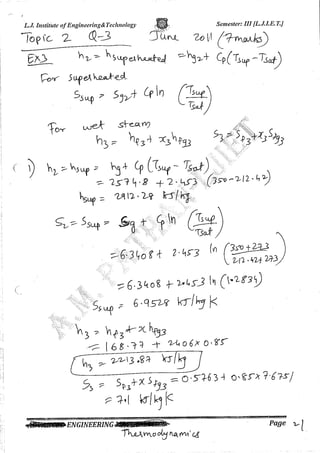 L.J. Institute of Engineering&Technology Semester: III [L.J.I.E.T.]
Topic 2 Q-3 June 2011 (7marks)
EX3 h2 = hsuperheated = hg2 + Cp (Tsup - Tsat)
For superheated
Ssup = Sg2 + Cp ln (Tsup / Tsat)
For wet steam
h3 = hf3 + x3 hfg3 S3 = Sf3 + x3 Sfg3
(1) h2 = hsup = hg + Cp (Tsup - Tsat)
= 2574.8 + 2.453 (350-212.42)
hsup = 2912.28 kJ/kg
S2 = Ssup = Sg + Cp ln (Tsup / Tsat)
= 6.3408 + 2.453 ln (350+273 / 212.42+273)
= 6.3408 + 2.453 ln (1.2834)
Ssup = 6.9528 kJ/kg K
h3 = hf3 + x hfg3
= 168.77 + 2406 x 0.85
h3 = 2213.87 kJ/kg
S3 = Sf3 + x Sfg3 = 0.5763 + 0.85 x 7.6751
= 7.1 kJ/kg K
A.M. PATHAN-LJIET
ENGINEERING Page 21
Thermodynamics